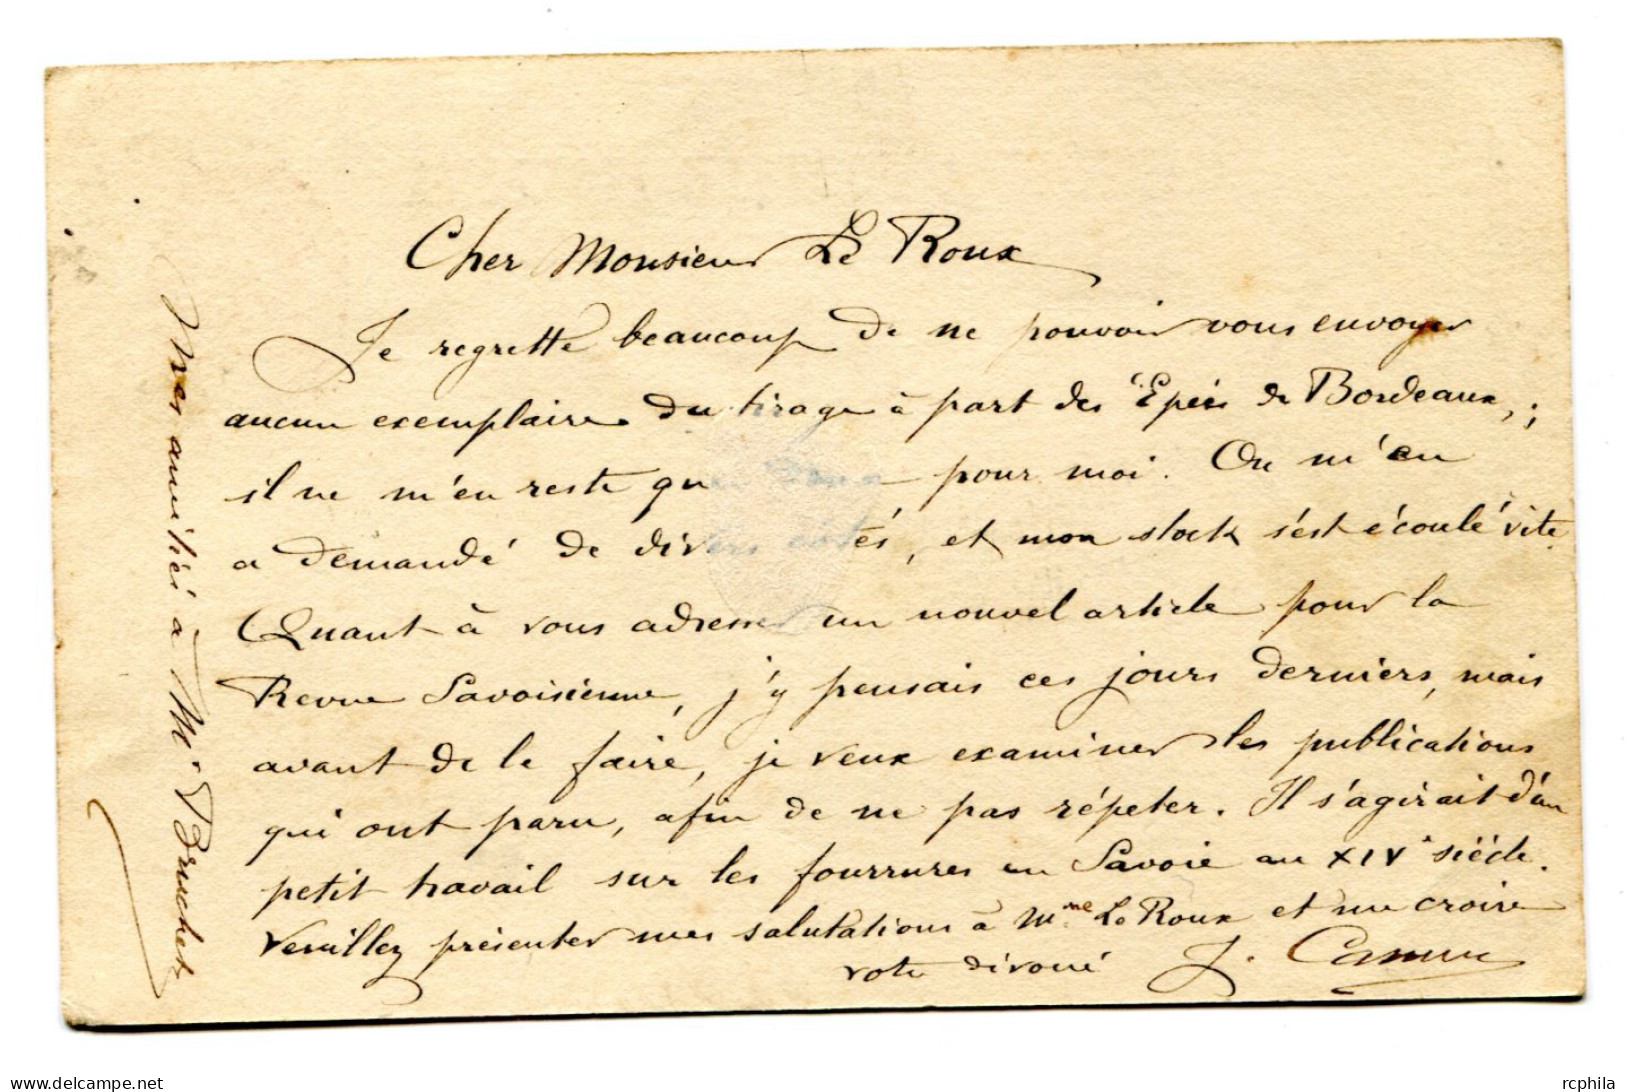 Cher Monsieur Le Roux
Je regrette beaucoup de ne pouvoir vous envoyer
aucun exemplaire du tirage à part des Epées de Bordeaux,;
il ne m'en reste qu pour moi. On m'en
a demandé de divers côtés, et mon stock s'est écoulé vite.
Quant à vous adresser un nouvel article pour la
Revue Savoisienne, j'y pensais ces jours derniers, mais
avant de le faire, je veux examiner les publications
qui ont paru, afin de ne pas répéter. Il s'agirait d'un
petit travail sur les fourrures en Savoie au XIVe siècle.
Veuillez présenter mes salutations à Mme Le Roux et me croire
votre dévoué J. Camus
Mes amitiés à Mr. Bruchet
rcphila